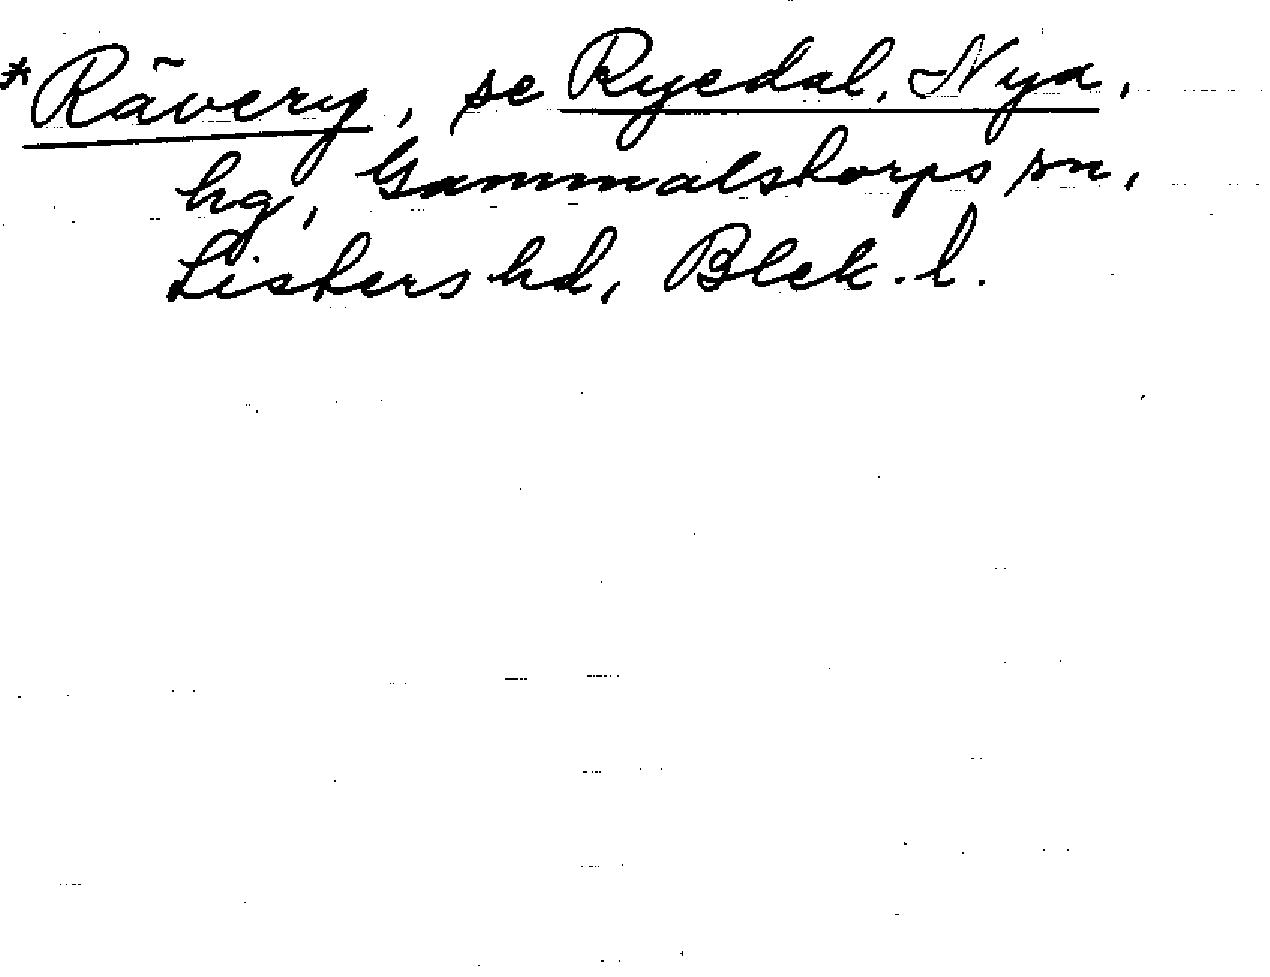 *Rävery, se Ryedal, Nya,
hg, Gammalstorps sn,
Listers hd, Blek. l.